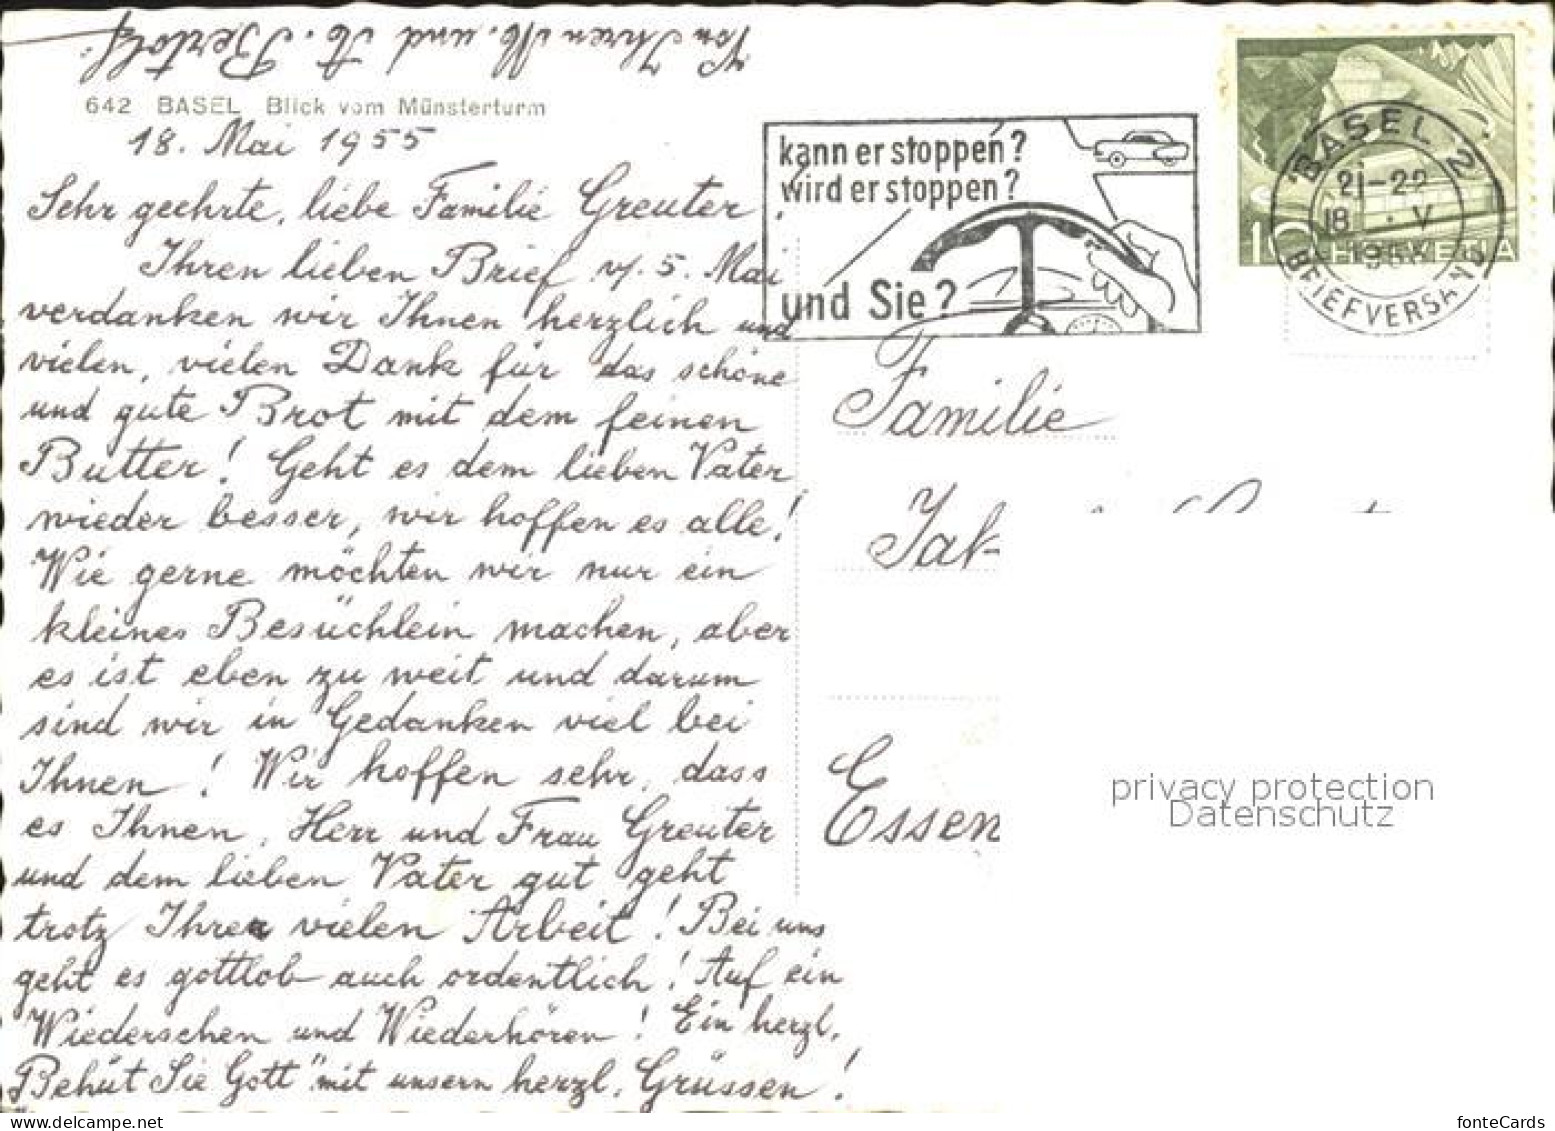 Von Ihren M. und A. Bertolf.
642 BASEL Blick vom Münsterturm
18. Mai 1955
Sehr geehrte, liebe Familie Greuter!
Ihren lieben Brief v. 5. Mai
verdanken wir Ihnen herzlich und
vielen, vielen Dank für das schöne
und gute Brot mit dem feinen
Butter! Geht es dem lieben Vater
wieder besser, wir hoffen es alle!
Wie gerne möchten wir nur ein
kleines Besüchlein machen, aber
es ist eben zu weit und darum
sind wir in Gedanken viel bei
Ihnen! Wir hoffen sehr, dass
es Ihnen, Herr und Frau Greuter
und dem lieben Vater gut geht
trotz Ihrer vielen Arbeit! Bei uns
geht es gottlob auch ordentlich! Auf ein
Wiedersehen und Wiederhören! Ein herzl.
"Behüt Sie Gott" mit unsern herzl. Grüssen!
kann er stoppen?
wird er stoppen?
und Sie?
BASEL 2
21-22
18. V
1955
BRIEFVERSAND
10 HELVETIA
Familie
Jak
Essen
privacy protection
Datenschutz
fonteCards